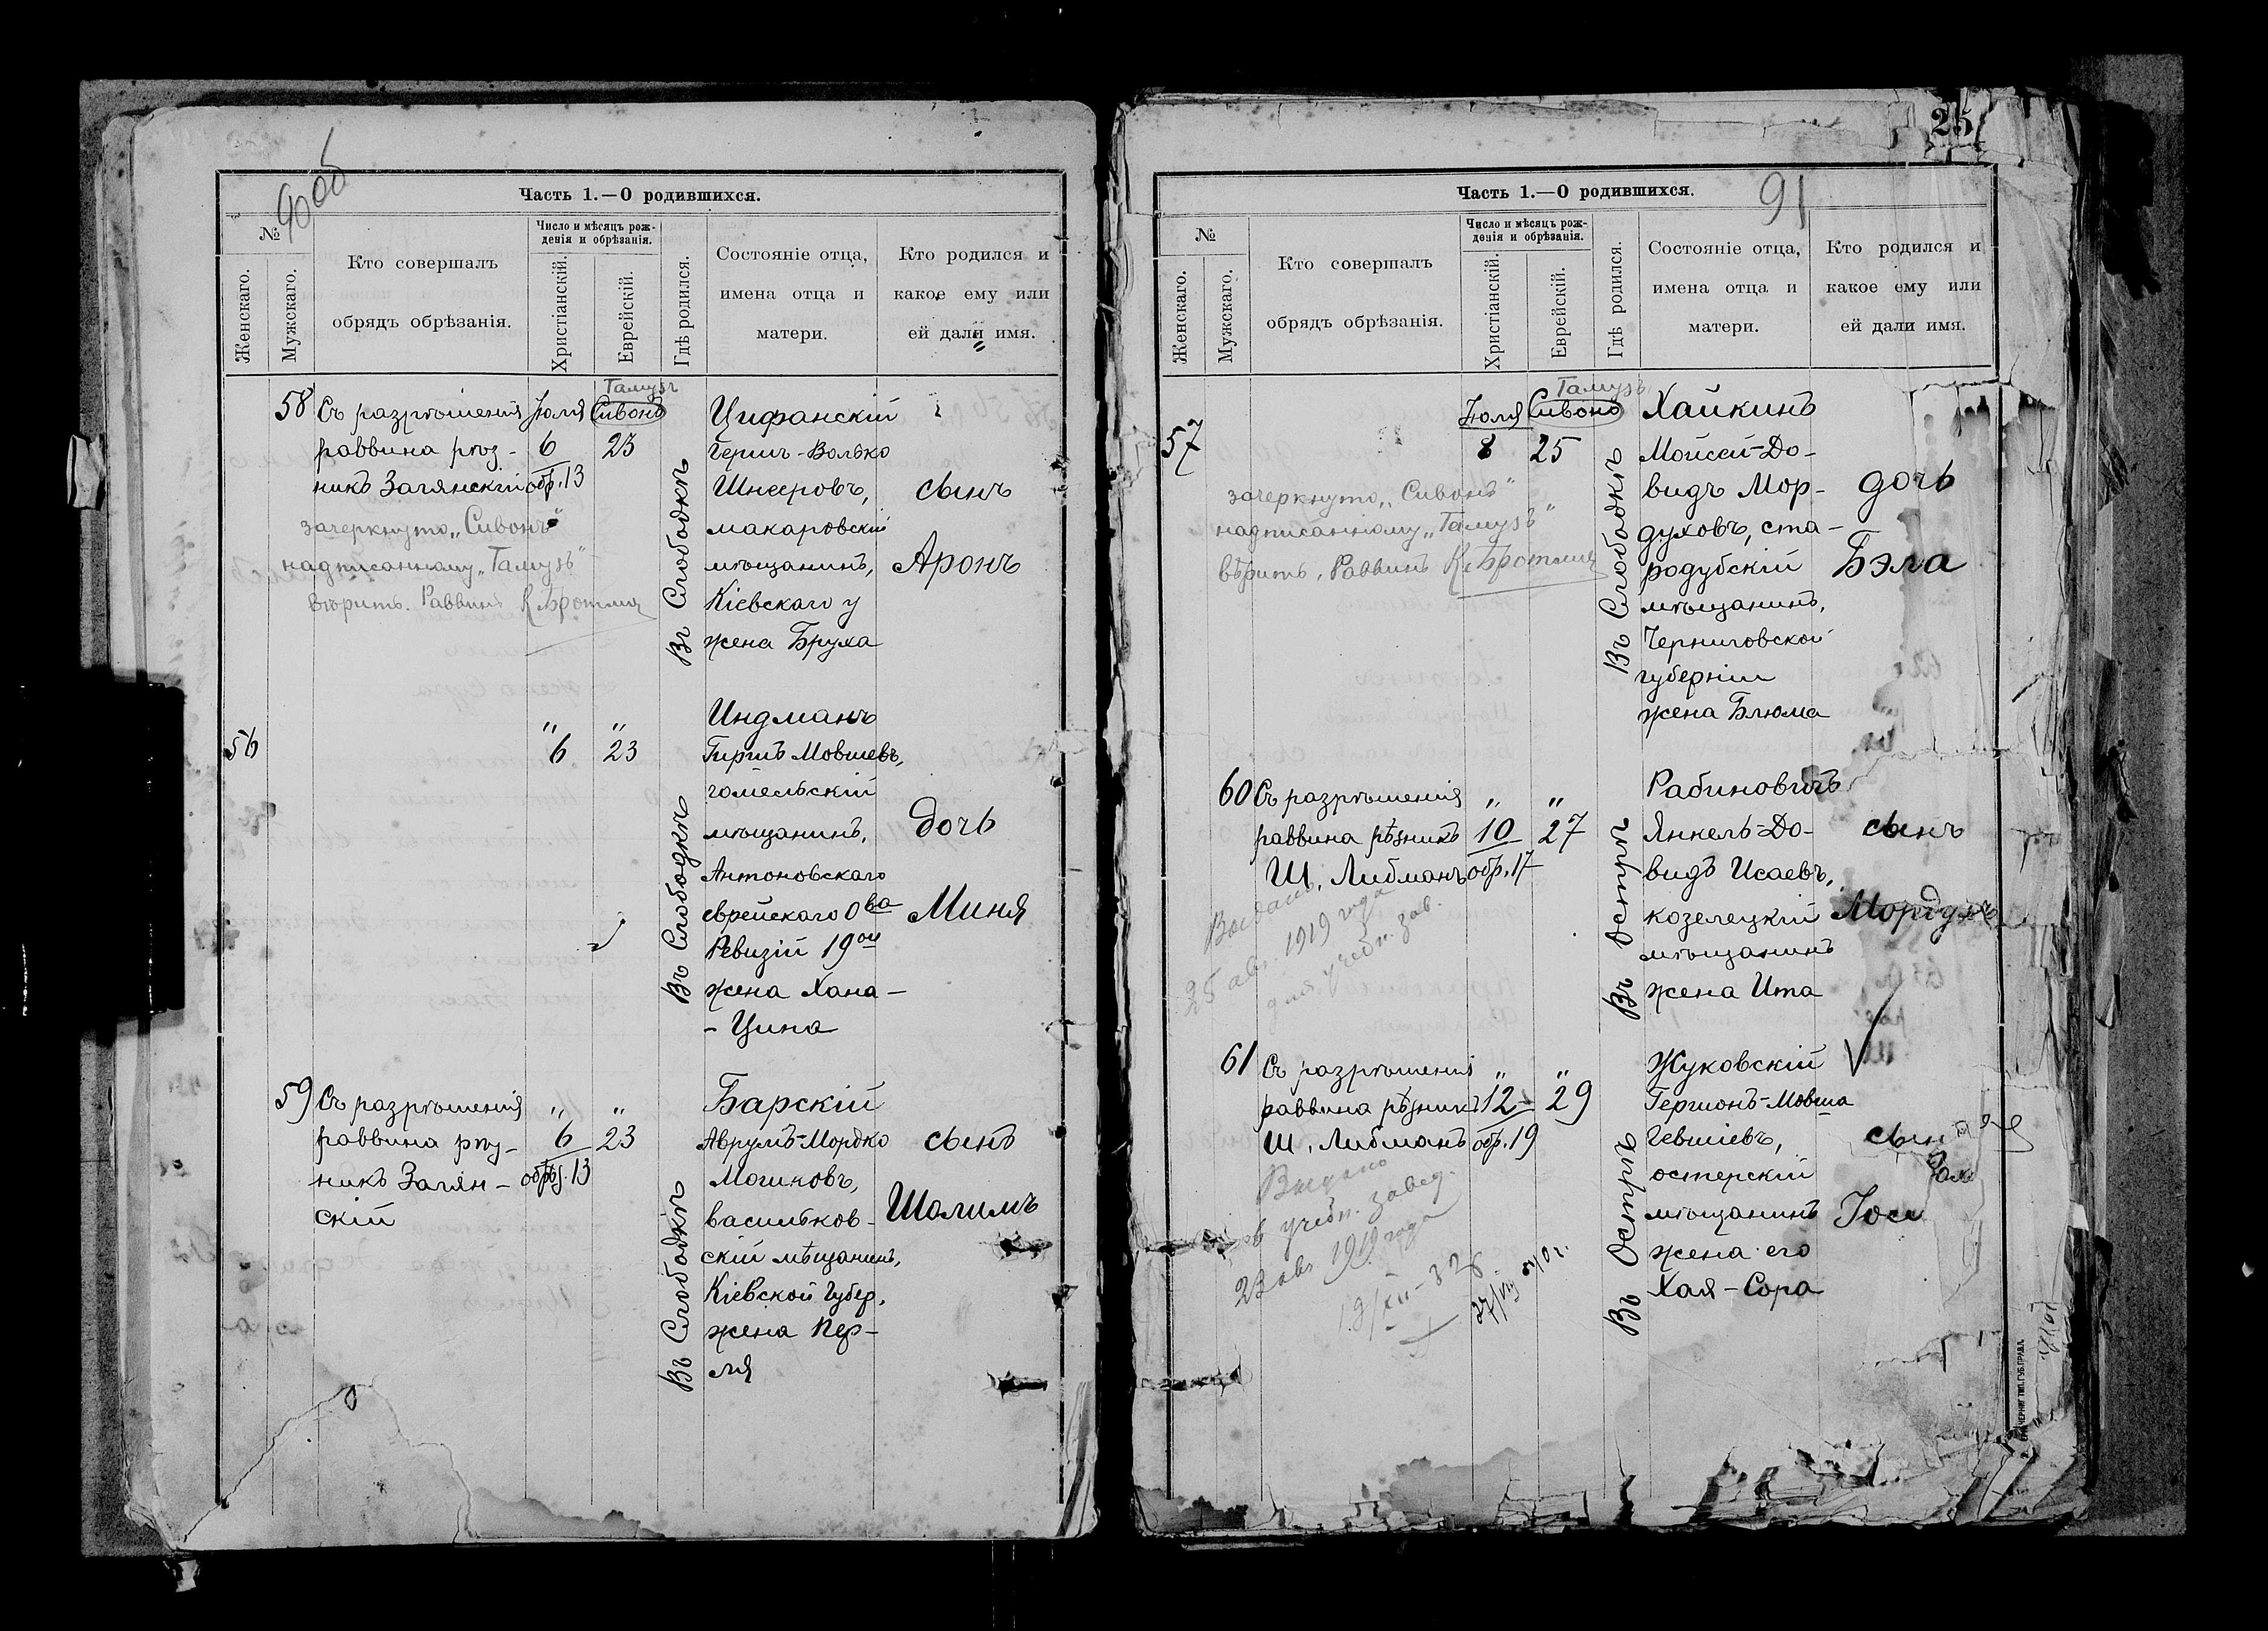 90 об
Часть 1.—О родившихся.
№
Женскаго.
Мужскаго.
Кто совершалъ
обрядъ обрѣзанія.
Число и мѣсяцъ рож-
денія и обрѣзанія.
Христіанскій.
Еврейскій.
Гдѣ родился.
Состояніе отца,
имена отца и
матери.
Кто родился и
какое ему или
ей дали имя.
58
Съ разрѣшенія
раввина рѣз-
никъ Загянскій
зачеркнуто „Сивонъ“
надписанному „Тамузъ“
вѣрить. Раввинъ
Іюля
6
обр. 13
Тамузъ
Сивонъ
23
Въ Слободкѣ
Цифанскій
Гершъ-Волько
Шнееровъ,
макаровскій
мѣщанинъ,
Кіевскаго у
жена Бруха
сынъ
Аронъ
56
„
6
„
23
Въ Слободкѣ
Индманъ
Гиршъ Мовшевъ,
гомельскій
мѣщанинъ,
Антоновскаго
еврейскаго О-ва
Ревизій 19ой
жена Хана-
- Цина
дочь
Миня
59
Съ разрѣшенія
раввина рѣз-
никъ Загян-
скій
„
6
обр. 13
„
23
Въ Слободкѣ
Барскій
Аврумъ-Мордко
васильков-
скій мѣщанинъ,
Кіевской Губер.
жена Пер-
ля
сынъ
Шолимъ
25
91
Часть 1.—О родившихся.
№
Женскаго.
Мужскаго.
Кто совершалъ
обрядъ обрѣзанія.
Число и мѣсяцъ рож-
денія и обрѣзанія.
Христіанскій.
Еврейскій.
Гдѣ родился.
Состояніе отца,
имена отца и
матери.
Кто родился и
какое ему или
ей дали имя.
57
зачеркнуто „Сивонъ“
надписанному „Тамузъ“
вѣрить, Раввинъ
Іюля
8
Тамузъ
Сивонъ
25
Въ Слободкѣ
Хайкинъ
Мойсей-До-
видъ Мор-
духовъ, ста-
родубскій
мѣщанинъ,
Черниговской
губерніи
жена Блюма
дочь
Бэла
60
Съ разрѣшенія
раввина рѣзникъ
Ш. Либманъ
25 авг. 1919 года
для учебн. зав.
„
10
обр. 17
„
27
Въ Острѣ
Рабиновичъ
Янкель-До-
видъ Исаевъ,
козелецкій
мѣщанинъ
жена Ита
сынъ
Мордухъ
61
Съ разрѣшенія
раввина рѣзникъ
Ш. Либманъ
Выдано
в учебн. завед.
23 авг. 1919 года
„
12
обр. 19
„
29
Въ Острѣ
Жуковскій
Гершонъ-Мовша
остерскій
мѣщанинъ
жена его
Хая-Сора
сынъ